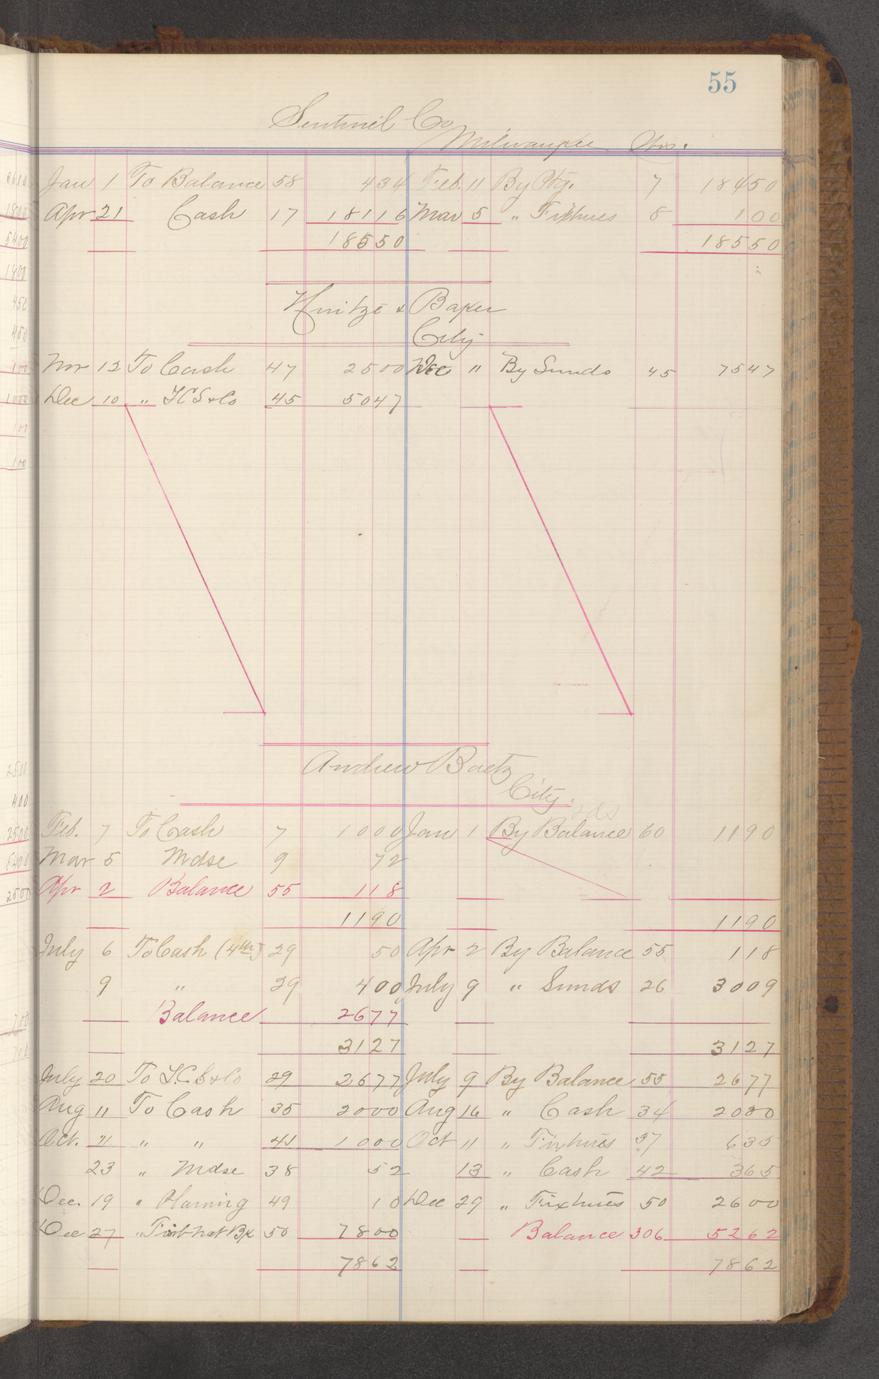 55
Sentinel Co
Milwaukee Wis.
Jan 1 To Balance 58 434 Feb. 11 By 7 18450
Apr 21 Cash 17 18116 Mar 5 " Fixtures 8 100
18550 18550
& Baker
City
Nov 12 To Cash 47 2500 Dec " By Sunds 45 7547
Dec 10 " T C S & Co 45 5047
Andrew Baetz
City.
Feb. 7 To Cash 7 1000 Jan 1 By Balance 60 1190
Mar 5 Mdse 9 72
Apr 2 Balance 55 118
1190 1190
July 6 To Cash 29 50 Apr 2 By Balance 55 118
9 " 29 400 July 9 " Sunds 26 3009
Balance 2677
3127 3127
July 20 To T.C.S & Co 29 2677 July 9 By Balance 55 2677
Aug 11 To Cash 35 2000 Aug 16 " Cash 34 2000
Oct. 11 " " 41 1000 Oct 11 " Fixtures 37 635
23 " Mdse 38 52 13 " Cash 42 365
Dec. 19 " Planing 49 10 Dec 29 " Fixtures 50 2600
Dec 27 " 50 7800 Balance 306 5262
7862 7862